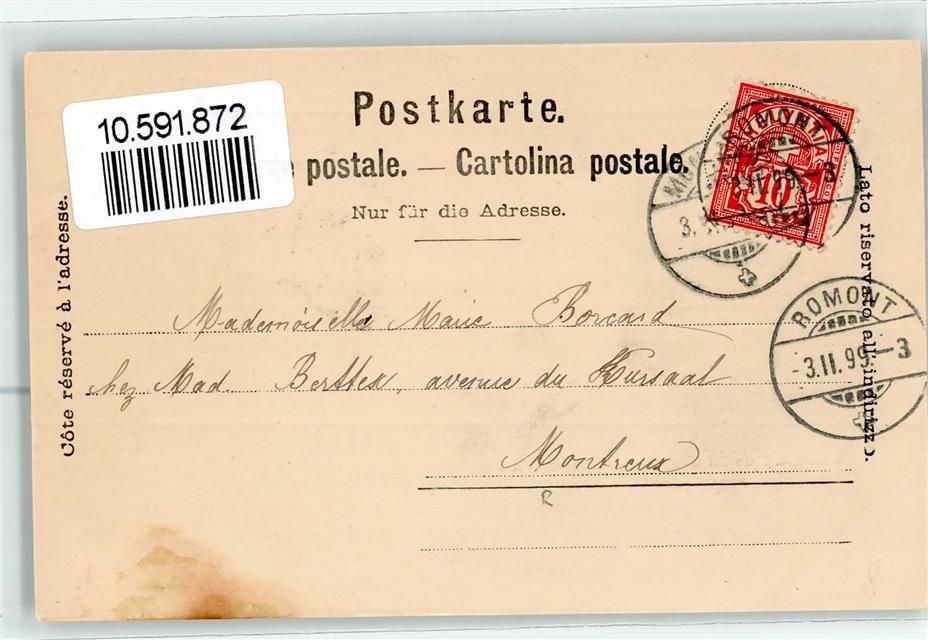 10.591.872
Postkarte.
postale. — Cartolina postale.
Nur für die Adresse.
Côte réservé à l'adresse.
Lato riservato all'indirizzo.
10
ROMONT
3.II.99-3
Mademoiselle Marie Borcard
chez Mad. Berttex, avenue du Kursaal
Montreux
R
8